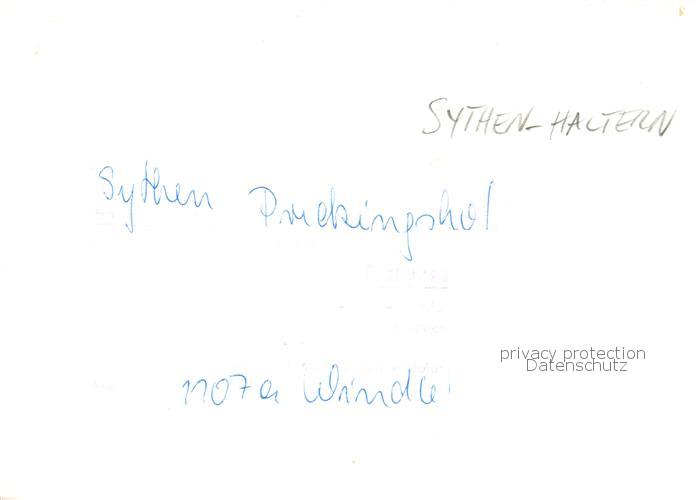 SYTHEN-HALTERN
Sythen Prickingshof
1107a Windle
privacy protection
Datenschutz